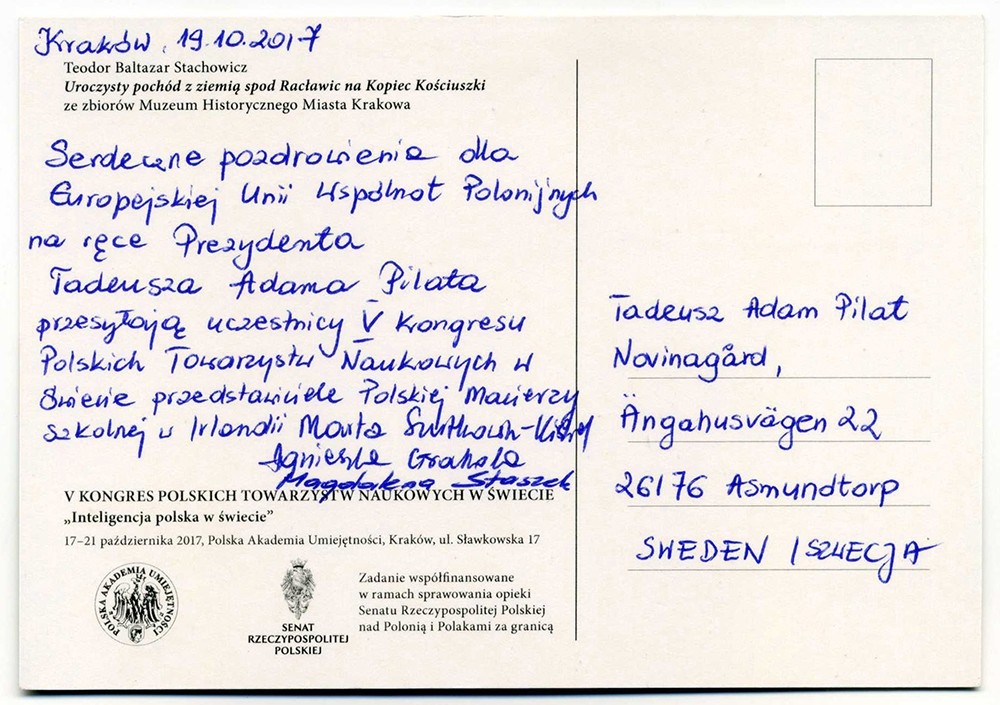 Kraków, 19.10.2017
Teodor Baltazar Stachowicz
Uroczysty pochód z ziemią spod Racławic na Kopiec Kościuszki
ze zbiorów Muzeum Historycznego Miasta Krakowa
Serdeczne pozdrowienia dla
Europejskiej Unii Wspólnot Polonijnych
na ręce Prezydenta
Tadeusza Adama Pilata
przesyłają uczestnicy V Kongresu
Polskich Towarzystw Naukowych w
Świecie przedstawiciele Polskiej Macierzy
szkolnej w Irlandii Marta
Agnieszka Grahala
Magdalena Staszek
V KONGRES POLSKICH TOWARZYSTW NAUKOWYCH W ŚWIECIE
„Inteligencja polska w świecie”
17–21 października 2017, Polska Akademia Umiejętności, Kraków, ul. Sławkowska 17
POLSKA AKADEMIA UMIEJĘTNOŚCI
SENAT
RZECZYPOSPOLITEJ
POLSKIEJ
Zadanie współfinansowane
w ramach sprawowania opieki
Senatu Rzeczypospolitej Polskiej
nad Polonią i Polakami za granicą
Tadeusz Adam Pilat
Novinagård,
Ängahusvägen 22
26176 Asmundtorp
SWEDEN / SZWECJA